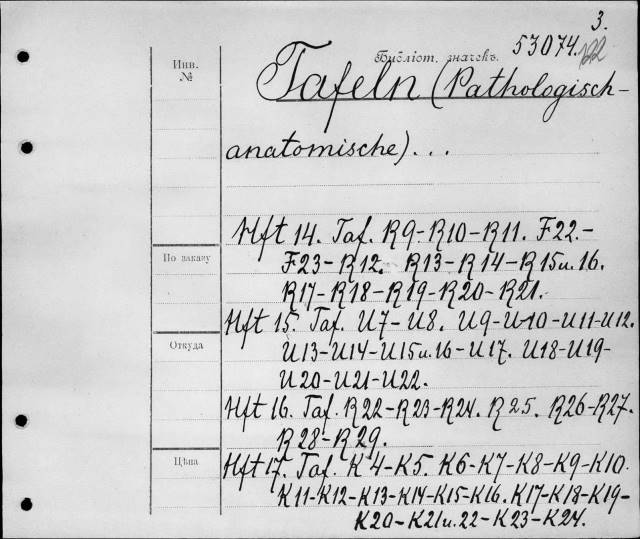 3.
53074. 122
Инв.
№
Библіот. значекъ.
Tafeln (Pathologisch-
anatomische)...
Hft 14. Taf. R9-R10-R11. F22.-
По заказу
F23-R12. R13-R14-R15u.16.
R17-R18-R19-R20-R21.
Hft 15. Taf. U7-U8. U9-U10-U11-U12.
Откуда
U13-U14-U15u.16-U17. U18-U19-
U20-U21-U22.
Hft 16. Taf. R22-R23-R24. R25. R26-R27.
R28-R29.
Цѣна
Hft 17. Taf. K4-K5. K6-K7-K8-K9-K10.
K11-K12-K13-K14-K15-K16. K17-K18-K19-
K20-K21u.22-K23-K24.